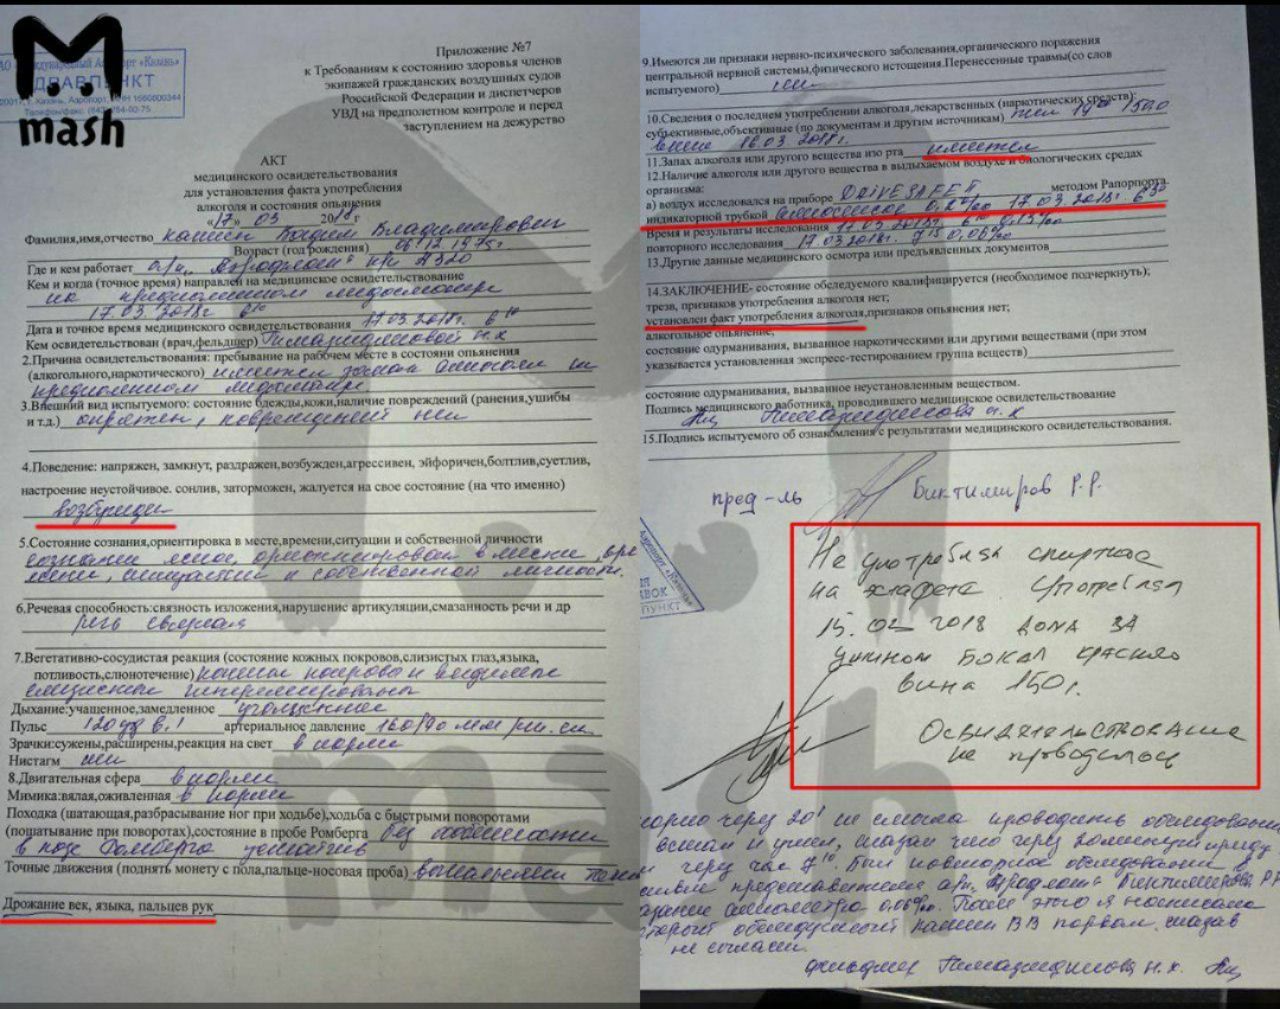 mash
ЗДРАВПУНКТ
Приложение №7
к Требованиям к состоянию здоровья членов
экипажей гражданских воздушных судов
Российской Федерации и диспетчеров
УВД на предполетном контроле и перед
заступлением на дежурство
АКТ
медицинского освидетельствования
для установления факта употребления
алкоголя и состояния опьянения
«17» 03 2018г
Фамилия,имя,отчество Владимирович
Возраст (год рождения) 06.12.1975г
Где и кем работает а/к „Аэрофлот" А320
Кем и когда (точное время) направлен на медицинское освидетельствование
на предполетном медосмотре
17.03.2018г 6 10
Дата и точное время медицинского освидетельствования 17.03.2018г. 6 10
Кем освидетельствован (врач,фельдшер) Н.Х
2.Причина освидетельствования: пребывание на рабочем месте в состоянии опьянения
(алкогольного,наркотического) имеется запах алкоголя на
предполетном медосмотре
3.Внешний вид испытуемого: состояние одежды,кожи,наличие повреждений (ранения,ушибы
и т.д.) опрятен, повреждений нет
4.Поведение: напряжен, замкнут, раздражен,возбужден,агрессивен, эйфоричен,болтлив,суетлив,
настроение неустойчивое. сонлив, заторможен, жалуется на свое состояние (на что именно)
возбужден
5.Состояние сознания,ориентировка в месте,времени,ситуации и собственной личности
сознание ясное, ориентирован в месте, вре
мени, ситуации и собственной личности.
6.Речевая способность:связность изложения,нарушение артикуляции,смазанность речи и др
речь связная
7.Вегетативно-сосудистая реакция (состояние кожных покровов,слизистых глаз,языка,
потливость,слюнотечение) кожные покровы и видимые
слизистые гиперемированы
Дыхание:учащенное,замедленное учащенное
Пульс 120 уд в 1 артериальное давление 160/90 мм рт.ст.
Зрачки:сужены,расширены,реакция на свет в норме
Нистагм нет
8.Двигательная сфера в норме
Мимика:вялая,оживленная в норме
Походка (шатающая,разбрасывание ног при ходьбе),ходьба с быстрыми поворотами
(пошатывание при поворотах),состояние в пробе Ромберга без особенностей
в позе Ромберга устойчив
Точные движения (поднять монету с пола,пальце-носовая проба) выполняет
Дрожание век, языка, пальцев рук
9.Имеются ли признаки нервно-психического заболевания,органического поражения
центральной нервной системы,физического истощения.Перенесенные травмы(со слов
испытуемого) нет
10.Сведения о последнем употреблении алкоголя,лекарственных (наркотических средств):
субъективные,объективные (по документам и другим источникам) 19 00 150,0
вина 16.03.2018г.
11.Запах алкоголя или другого вещества изо рта имеется
12.Наличие алкоголя или другого вещества в выдыхаемом воздухе и биологических средах
организма:
а) воздух исследовался на приборе DRIVESAFE II методом Рапорпорта.
индикаторной трубкой 17.03.2018г. 6 30
Время и результаты исследования 17.03.2018г. 6 10 0,13 ‰
повторного исследования 17.03.2018г. 7 15 0,06 ‰
13.Другие данные медицинского осмотра или предъявленных документов
14.ЗАКЛЮЧЕНИЕ- состояние обследуемого квалифицируется (необходимое подчеркнуть);
трезв, признаков употребления алкоголя нет;
установлен факт употребления алкоголя,признаков опьянения нет;
алкогольное опьянение;
состояние одурманивания, вызванное наркотическими или другими веществами (при этом
указывается установленная экспресс-тестированием группа веществ)
состояние одурманивания, вызванное неустановленным веществом.
Подпись медицинского работника, проводившего медицинское освидетельствование
Н.Х
15.Подпись испытуемого об ознакомлении с результатами медицинского освидетельствования.
пред-ль Биктимиров Р.Р.
Не употреблял спиртное
на эстафете. Употреблял
15.03 2018 дома за
ужином бокал красного
вина 150г.
Освидетельствование
не проводилось
через 20' не смогла проводить обследование
встал и ушел, сказал что через 20 минут приду
через час 7 10 Был повторное обследование в
представителя а/к „Аэрофлот" Биктимирова Р.Р.
алкометра 0,06‰. После этого я написала
В.В порвал, сказав
не согласен.
фельдшер Н.Х.
mash